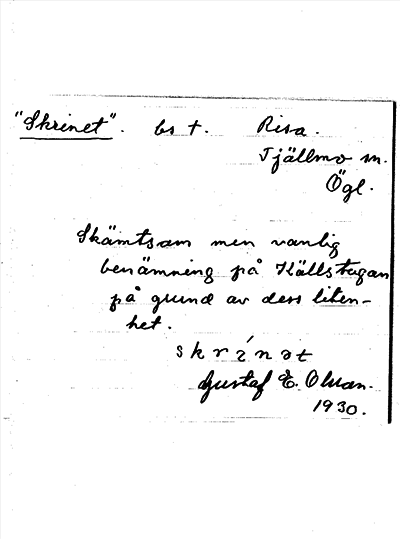 "Skrinet". bs t. Risa.
Tjällmo sn.
Ögl.
Skämtsam men vanlig
benämning på Källstugan
på grund av dess liten-
het.
skrínət
Gustaf E. Olsson.
1930.